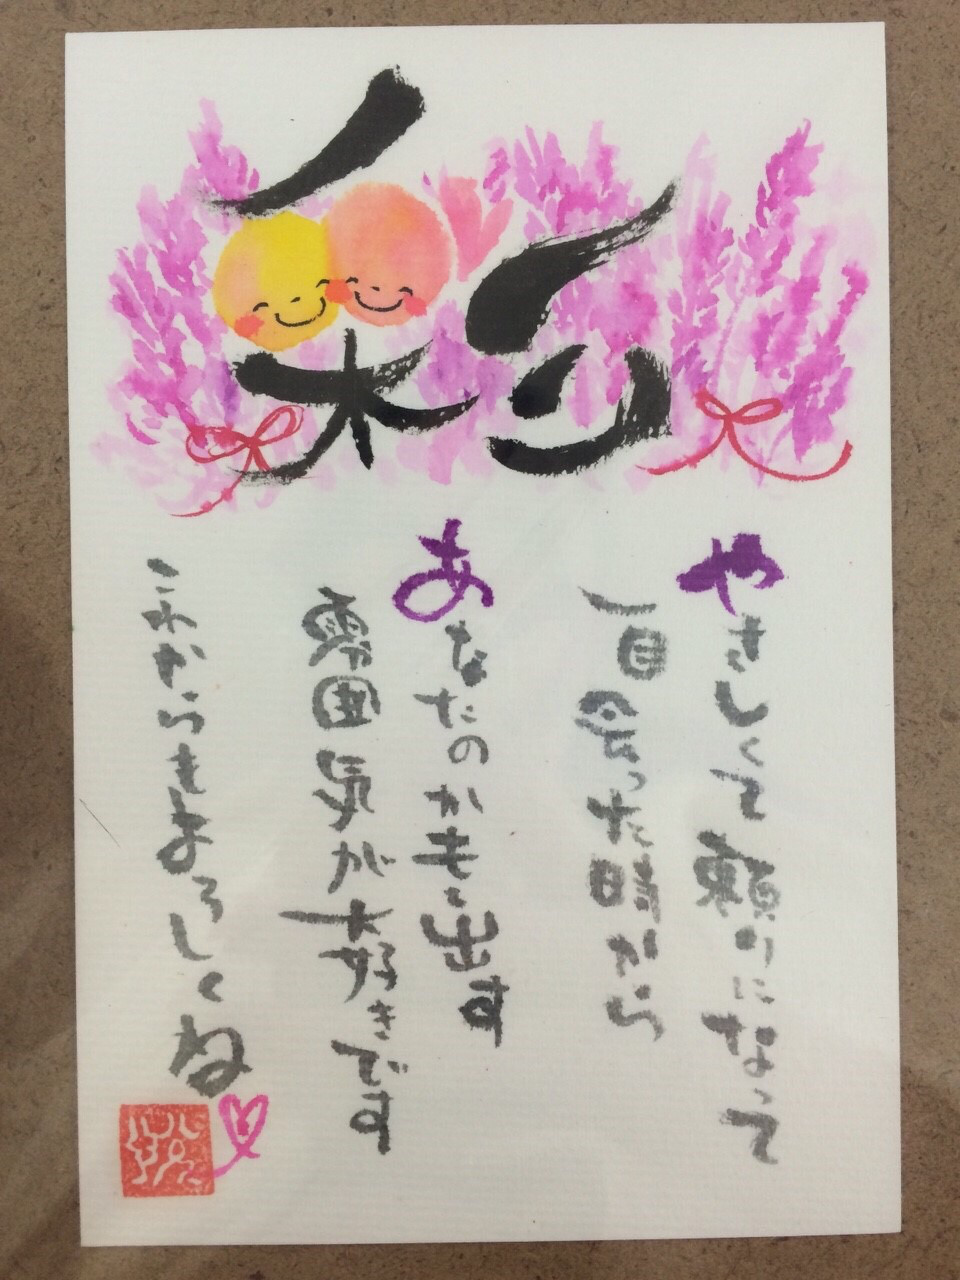 和
やさしくて頼りになって
一目会った時から
あなたのかもし出す
雰囲気が大好きです
これからもよろしくね